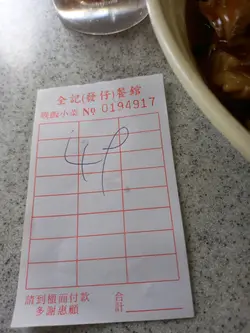 全記(發仔)餐館
晚飯小菜 No 0194917
49
請到櫃面付款
多謝惠顧
合計